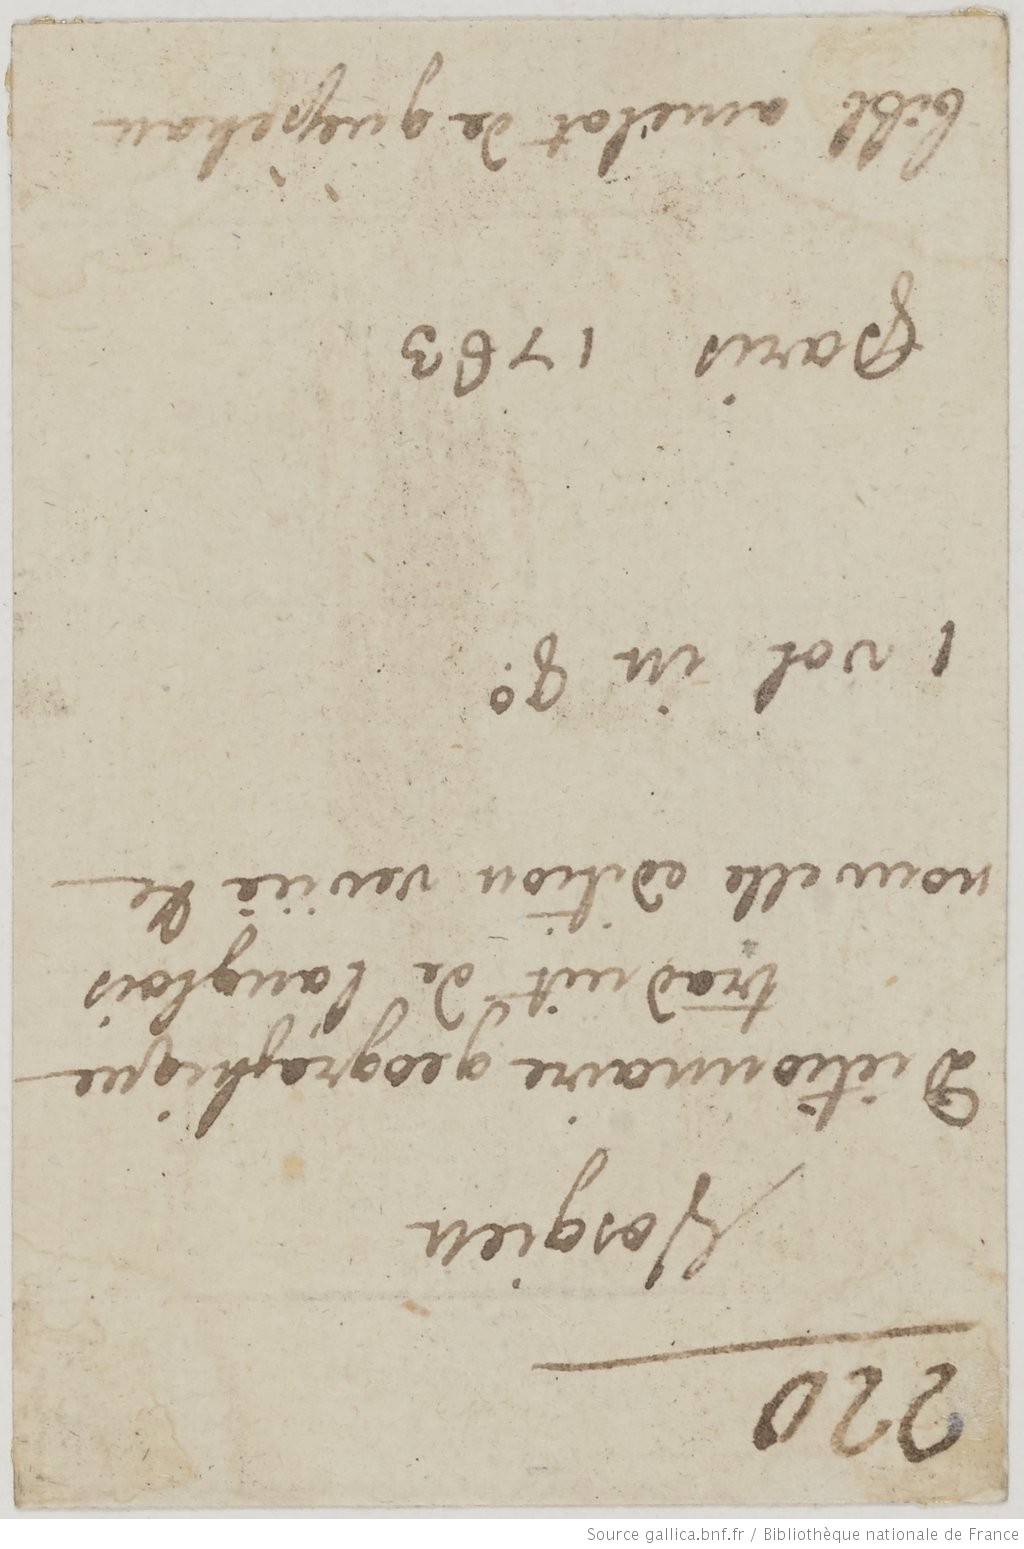 220
Vosgien
Dictionnaire geographique
traduit de l'anglois
nouvelle edition reviie &c
1 vol in 8.º
paris 1763
bibl amelot de guepehan
Source gallica.bnf.fr / Bibliothèque nationale de France